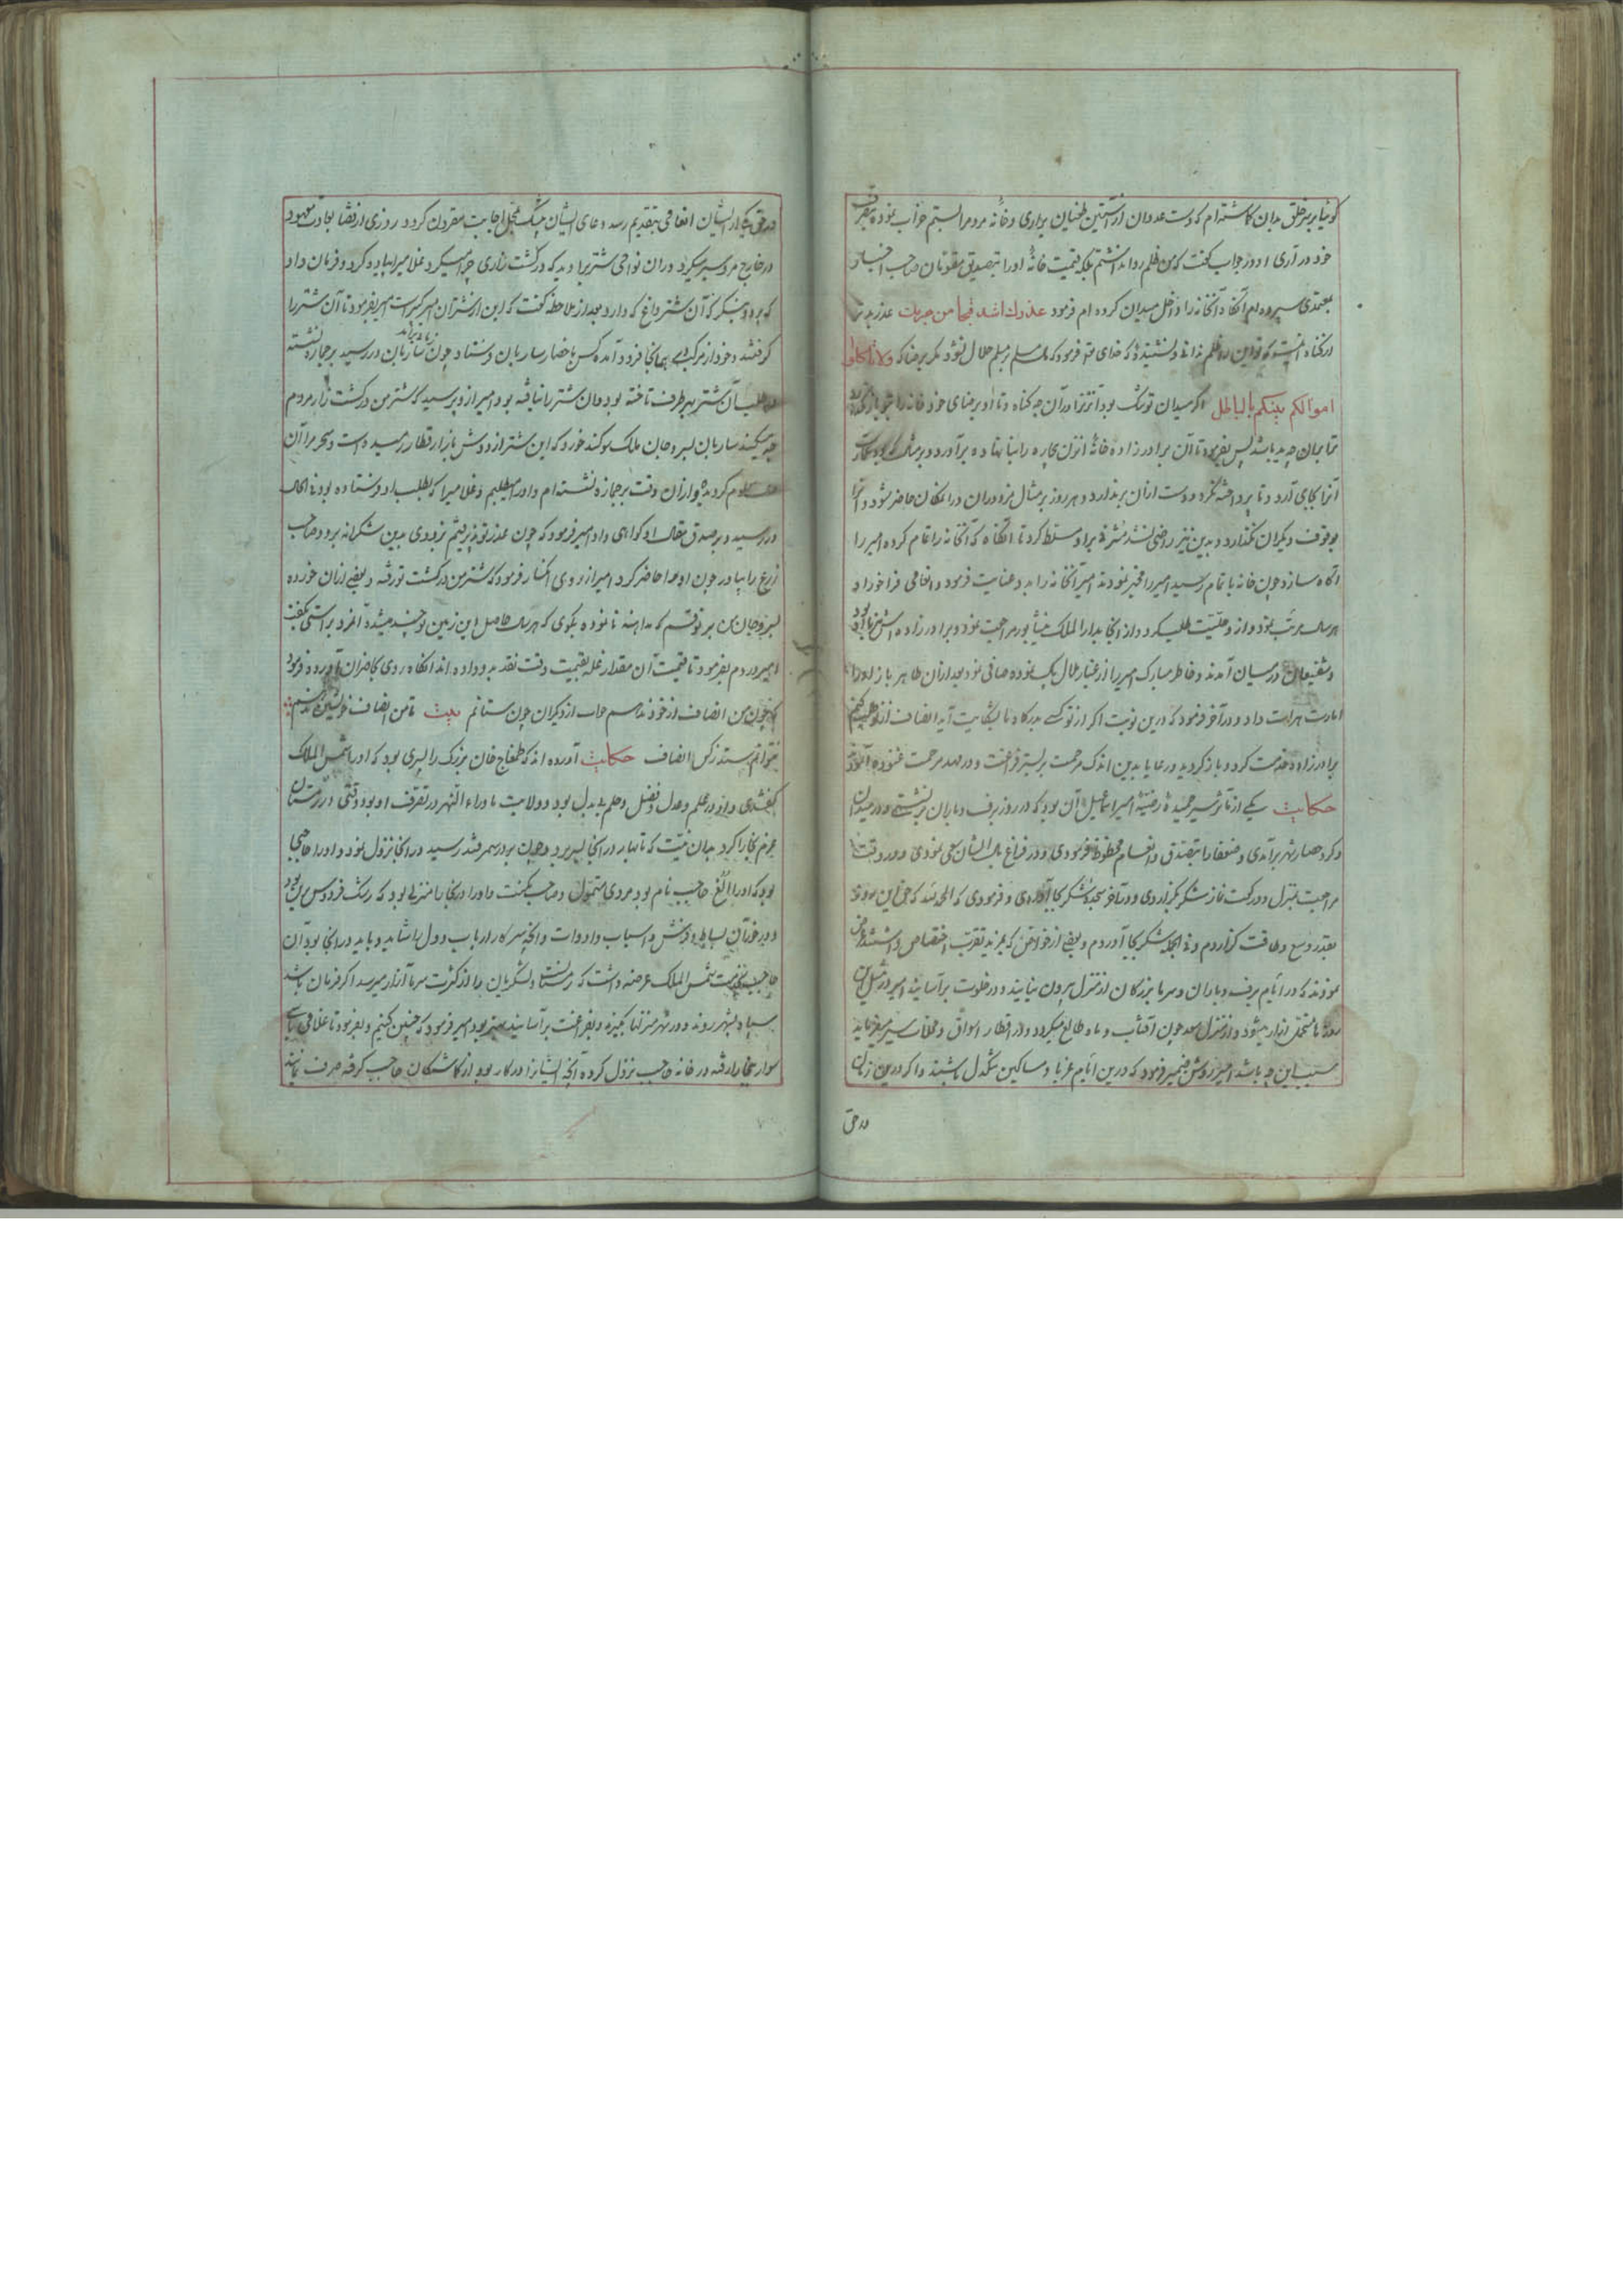 کوتا بر سر خلق بدان کاشته‌ام که دست عدوان از آستین طغیان براری و خانه مردمرا بستم خراب نموده بتصرف
خود در آری او در جواب کفت که من ظلم روا نداشتم بلکه قیمت خانهٔ او را بتصدیق مقومان صاحب اختیار
بمعتمدی سپرده‌ام آنکاه آنخانه را داخل میدان کرده‌ام فرمود عذرك اشد قبحا من جرمك عذر بدتر
از کناه اینست که تو این را ظلم ندانی و نشنیدهٔ که خدای فرمود که مال مسلم بر مسلم حلال نشود مکر برضا که ولا تاکلوا
اموالکم بینکم بالباطل اکر میدان تو تنک بود آنزنرا در آن چه کناه و تا او برضای خود خانه را بتو باز نکذارد
ترا بران چه ید باشد پس بفرمود تا آن برادرزاده خانهٔ انزن بیچاره را بنا نهاده برآورد و بر مثال که بود عمارت
آنرا بجای آرد و تا پرداخته نکردد دست ازان برندارد و هر روز بر مثال مزدوران در امکان حاضر شود و آنرا
موقوف دیکران نکذارد و بدین نیز راضی نشد مشرفی بر او مسلط کرد تا انکاه که آنخانه را تمام کرده امیر را
آکاه سازد چون خانه باتمام رسید امیر را مخبر نمودند امیر آنخانه را بدو عنایت فرمود و انعامی فراخور او
و شفیعان در میان آمدند و خاطر مبارک امیر را از غبار ملال پاک نموده صافی نمود بعد ازان طاهر باز او را
امارت هرات داد و در آخر فرمود که درین نوبت اکر از تو کسی بدرکاه ما بشکایت آید انصاف از تو طلب کنیم
برادرزاده خدمت کرد و باز کردید و رعایا بدین اندک مرحمت بر بستر فراغت و در مهد مرحمت غنوده آسودند
حکایت یکی از مآثر سیر حمیدهٔ رضیهٔ امیر اسماعیل آن بود که در روز برف و باران برنشستی و در میدان
و کرد حصار شهر برآمدی و ضعفا را بتصدق و انعام محظوظ فرمودی و در فراغ بال ایشان سعی نمودی و در وقت
مراجعت بمنزل دو رکعت نماز شکر بکزاردی و در آخر سجدهٔ شکر بجا آوردی و فرمودی که الحمدلله که حق این روز
بقدر وسع و طاقت کزاردم و فی الجمله شکر بجا آوردم و بعضی از خواص که بمزید تقرب اختصاص داشتند عرض
نمودند که در ایام برف و باران و سرما بزرکان از منزل بیرون نیایند و در خلوت برآسایند امیر در مثل این
روزها متحمل ایذا میشود و از منزل سعد چون آفتاب و ماه طالع میکردد و در اقطار اسواق و محلات سیر میفرماید
سبب این چه باشد امیر روشن ضمیر فرمود که درین ایام غربا و مساکین تنکدل باشند و اکر درین زمان
در حق
در حق یکی از ایشان انعامی بتقدیم رسد دعای ایشان بی‌شک بمحل اجابت مقرون کردد روزی از قضا بعادت معهود
در خارج مرو سیر میکرد دران نواحی شتریرا دید که در کشت زاری چرا میکرد غلامیرا پیاده کرد و فرمان داد
که برود بنکرد که آن شتر داغ که دارد بعد از ملاحظه کفت که این از شتران امیر کبیر است امیر بفرمود تا آن شتر را
کرفتند و خود از مرکب هم آنجا فرود آمده کس باحضار ساربان فرستاد چون ساربان در رسید بر جمازه نشسته
در طلب آن شتر بهر طرف تاخته بود و آن شتر را نیافته بود امیر از و پرسید که شتر من در کشت زار مردم
چه میکند ساربان بسر و جان ملک سوکند خورد که این شتر از دوش باز از قطار رمیده است و سحر مرا آن
معلوم کردید و ازان وقت بر جمازه نشسته‌ام و او را میطلبم و غلامیرا که بطلب او فرستاده بود فی الحال
در رسید و بر صدق مقال او کواهی داد امیر فرمود که چون عذر تو پذیرفتیم بزودی بدین شکرانه برو و صاحب
زرع را بیاور چون او را حاضر کرد امیر از روی اکتسار فرمود که شتر من در کشت تو رفته و بعضی ازان خورده
بسر و جان من بر تو قسم که مداهنه نانموده بکوی که هر سال حاصل این زمین تو چند میشده آنمرد براستی بکفت
امیر در دم بفرمود تا قیمت آن مقدار غله بقیمت وقت نقد بدو داده‌اند انکاه روی بحاضران آورده فرمود
که چون من انصاف از خود ندهم جواب از دیکران چون ستانم بیت تا من انصاف خویشتن ندهم
نتوانم ستد ز کس انصاف حکایت آورده‌اند که طمغاج خان بزرک را پسری بود که او را شمس الملک
کفتندی و او در علم و عدل و فضل و حلم بی‌بدل بود و ولایت ماوراء النهر در تصرف او بود وقتی در زمستان
عزم بخارا کرد بدان نیت که تا بهار در آنجا بسر برد و چون بدر سمرقند رسید در آنجا نزول نمود و او را حاجبی
بود که او را الغ حاجب نام بود مردی متمول و صاحب مکنت و او را در بخارا منزلی بود که رشک فردوس برین بود
و در خور آن بساط و فرش و اسباب و ادوات و آنچه بسرکار ارباب دول باشاید و باید در آنجا بود آن
حاجب بخدمت شمس الملک عرضه داشت که زمستان است و لشکریان را از کثرت سرما آزار میرسد اکر فرمان باشد
سپاه بشهر روند و در شهر منزلها بکیرند و بفراغت برآسایند بهتر بود امیر فرمود که چنین کنیم و بفرمود تا غلامی
سوار بخارا رفته در خانه حاجب نزول کرده آنچه ایشانرا در کار بود از کماشتکان حاجب کرفته صرف نمایند